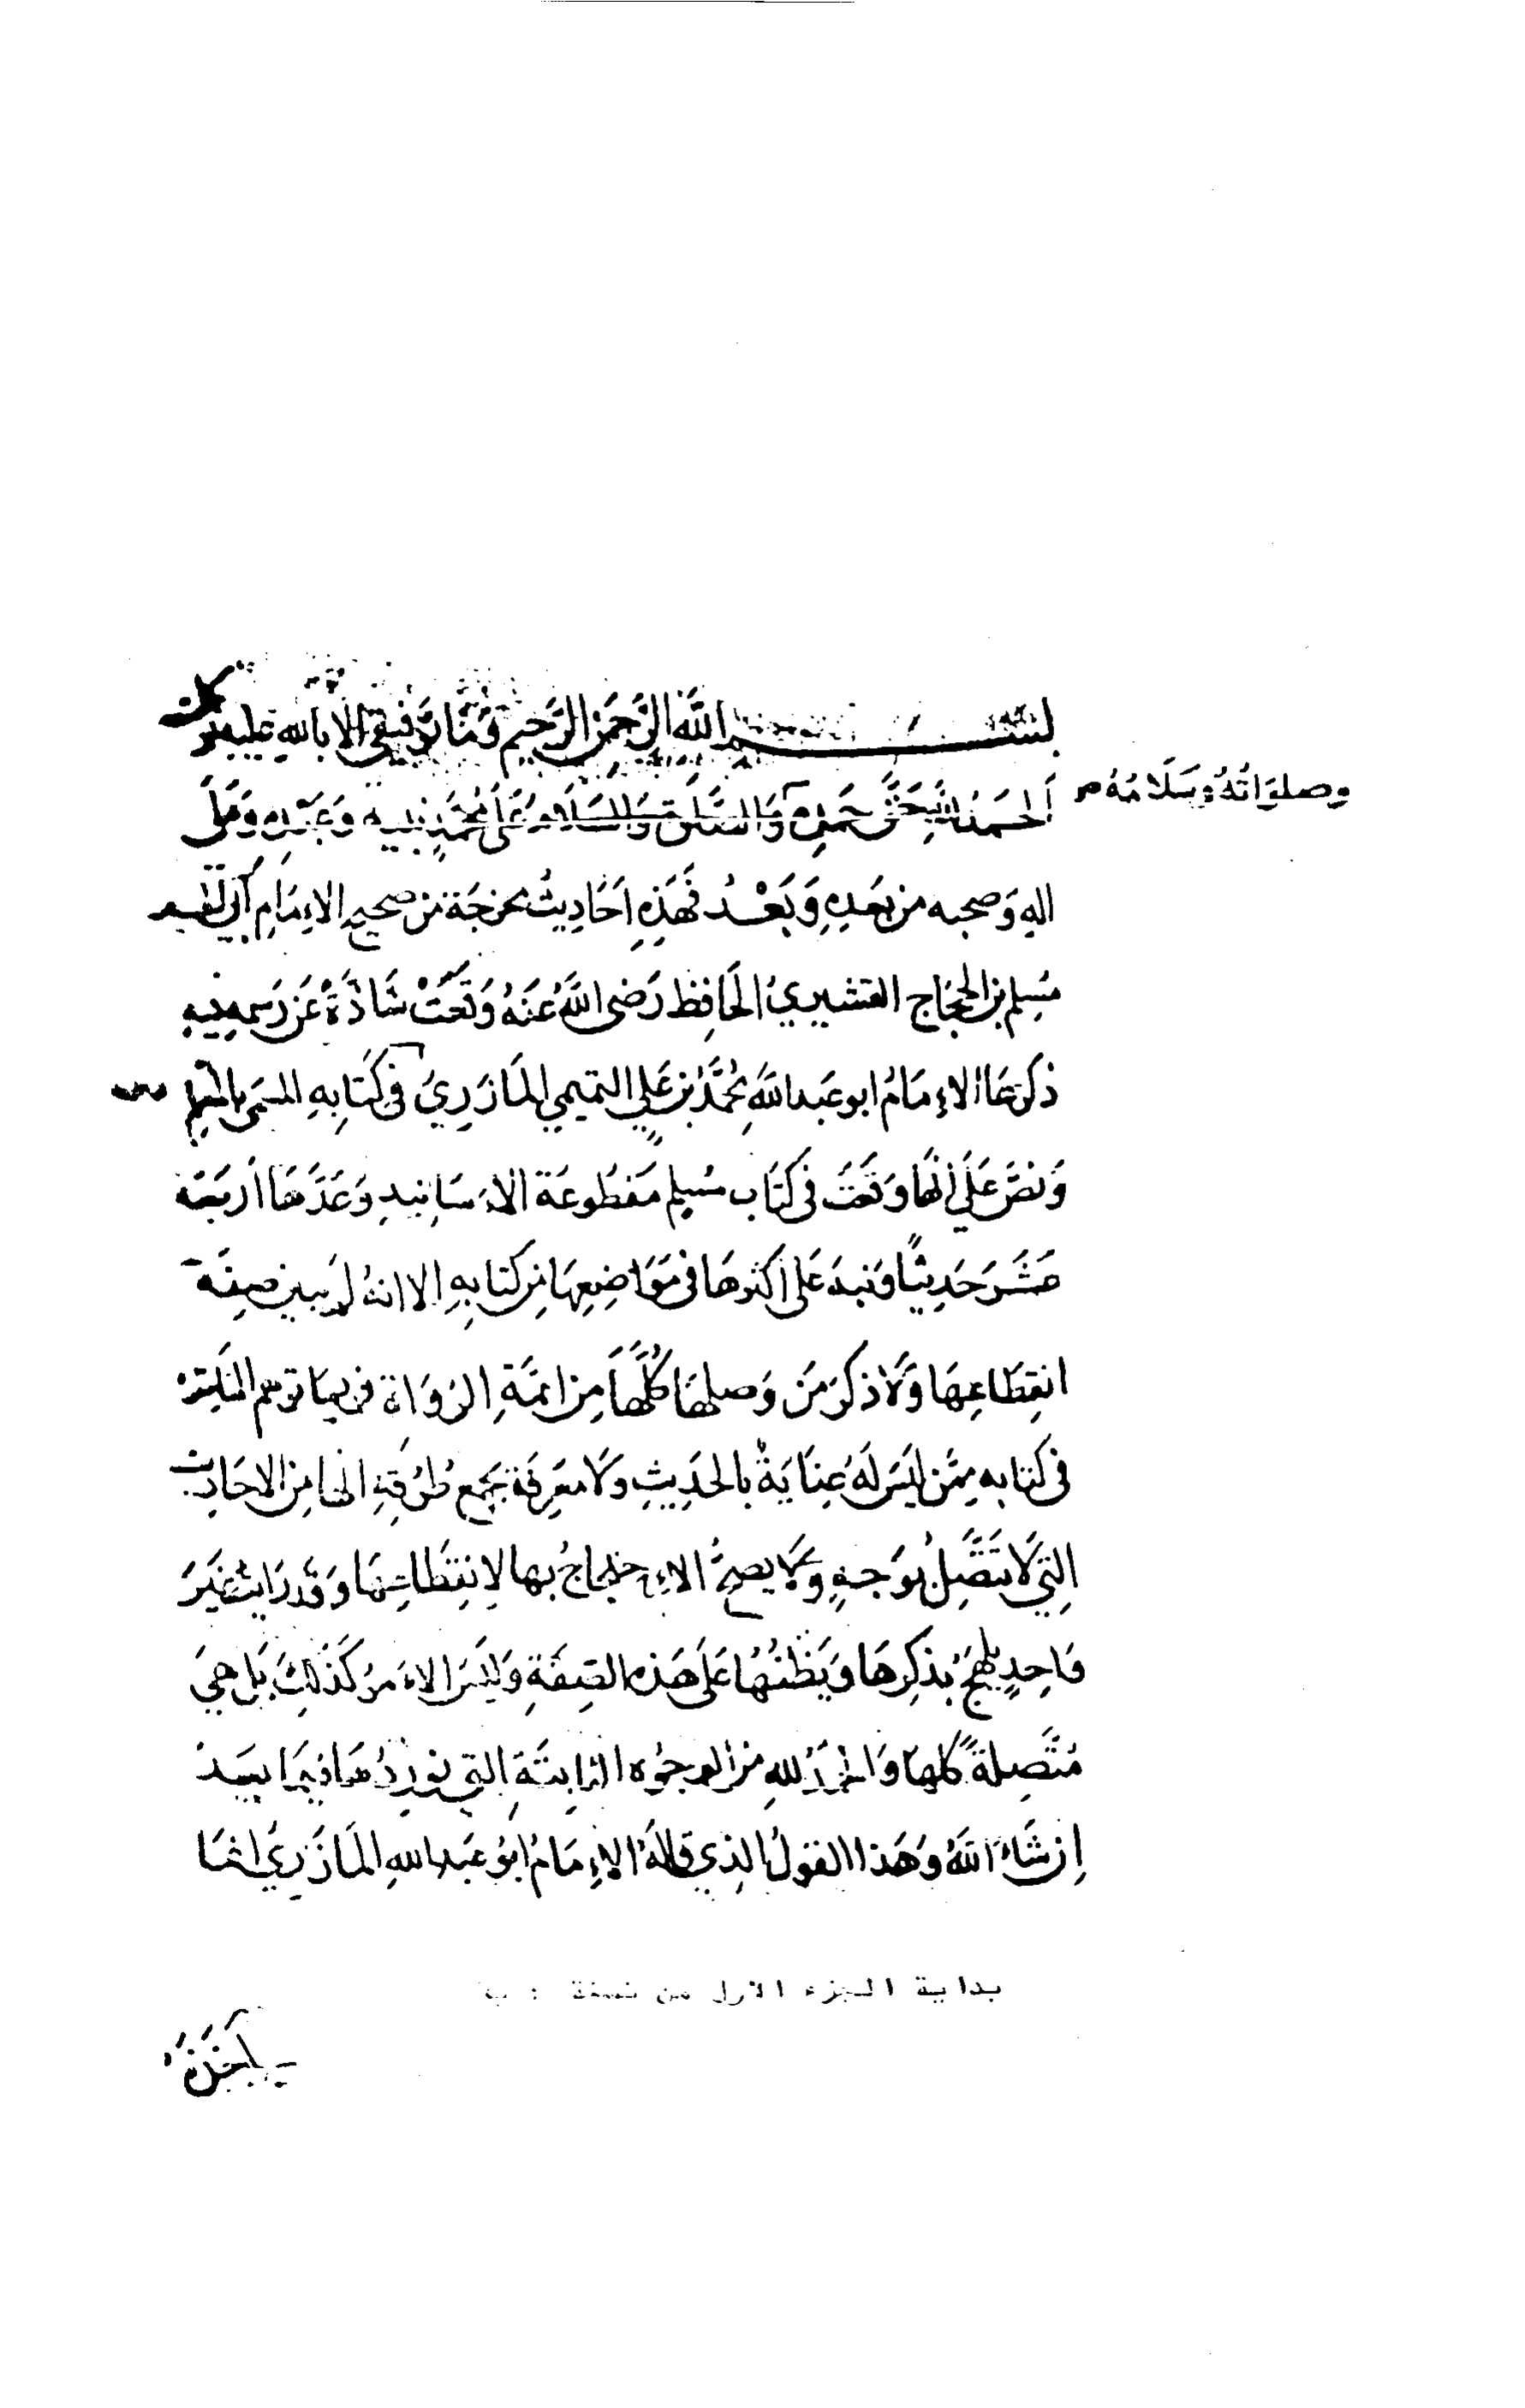 بسم الله الرحمن الرحيم وما توفيقي الا بالله عليه توكلت
الحمد لله حق حمده والصلاة والسلام على محمد نبيه وعبده وعلى
وصلواته وسلامه صح
اله وصحبه من بعده وبعد فهذه احاديث مخرجة من صحيح الإمام أبي الحسين
مسلم بن الحجاج القشيري الحافظ رضي الله عنه وقعت شاذة عن رسمه فيه
ذكرها الإمام ابو عبد الله محمد بن علي التميمي المازري في كتابه المسمى بالمعلم
ونص على انها وقعت في كتاب مسلم مقطوعة الأسانيد وعدها أربعة
عشر حديثا ونبه على اكثرها في مواضعها من كتابه إلا انه لم يبين صفة
انقطاعها ولا ذكر من وصلها كلها من ائمة الرواة فربما توهم الناظر
في كتابه ممن ليس له عناية بالحديث ولا معرفة بجمع طرقه انها من الاحاديث
التي لا تتصل بوجه ولا يصح الاحتجاج بها لانقطاعها وقد رايت غير
واحد يلهج بذكرها ويظنها على هذه الصفة وليس الأمر كذلك بل هي
متصلة كلها والحمد لله من الوجوه الثابتة التي نوردها فيما بعد
إن شاء الله وهذا القول الذي قاله الإمام ابو عبد الله المازري انما
بداية الجزء الاول من نسخة : ب
أخذه